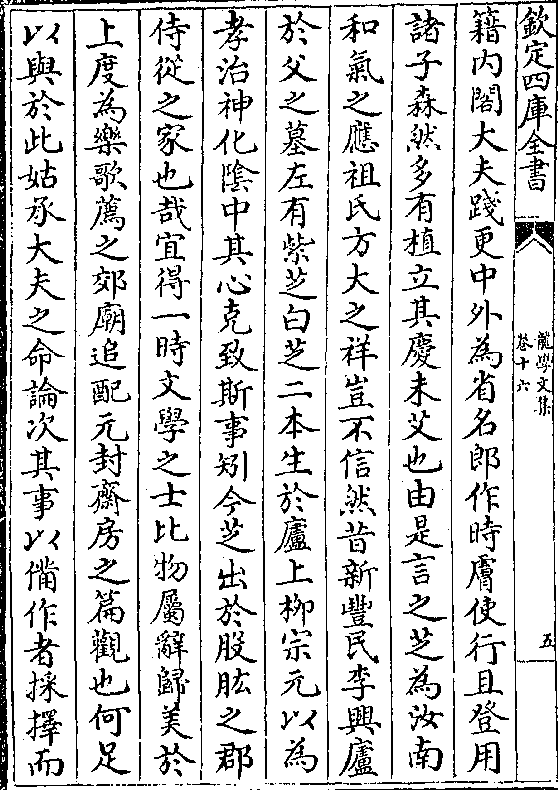 欽定四庫全書
龍學文集
卷十六
五
籍內閣大夫踐更中外為省名郎作時膚使行且登用
諸子森然多有植立其慶未艾也由是言之芝為汝南
和氣之應祖氏方大之祥豈不信然昔新豐民李興廬
於父之墓左有紫芝白芝二本生於廬上柳宗元以為
孝治神化隂中其心克致斯事矧今芝出於股肱之郡
侍從之家也哉宜得一時文學之士比物屬辭歸美於
上度為樂歌薦之郊廟追配元封齋房之篇觀也何足
以與於此姑承大夫之命論次其事以備作者採擇而